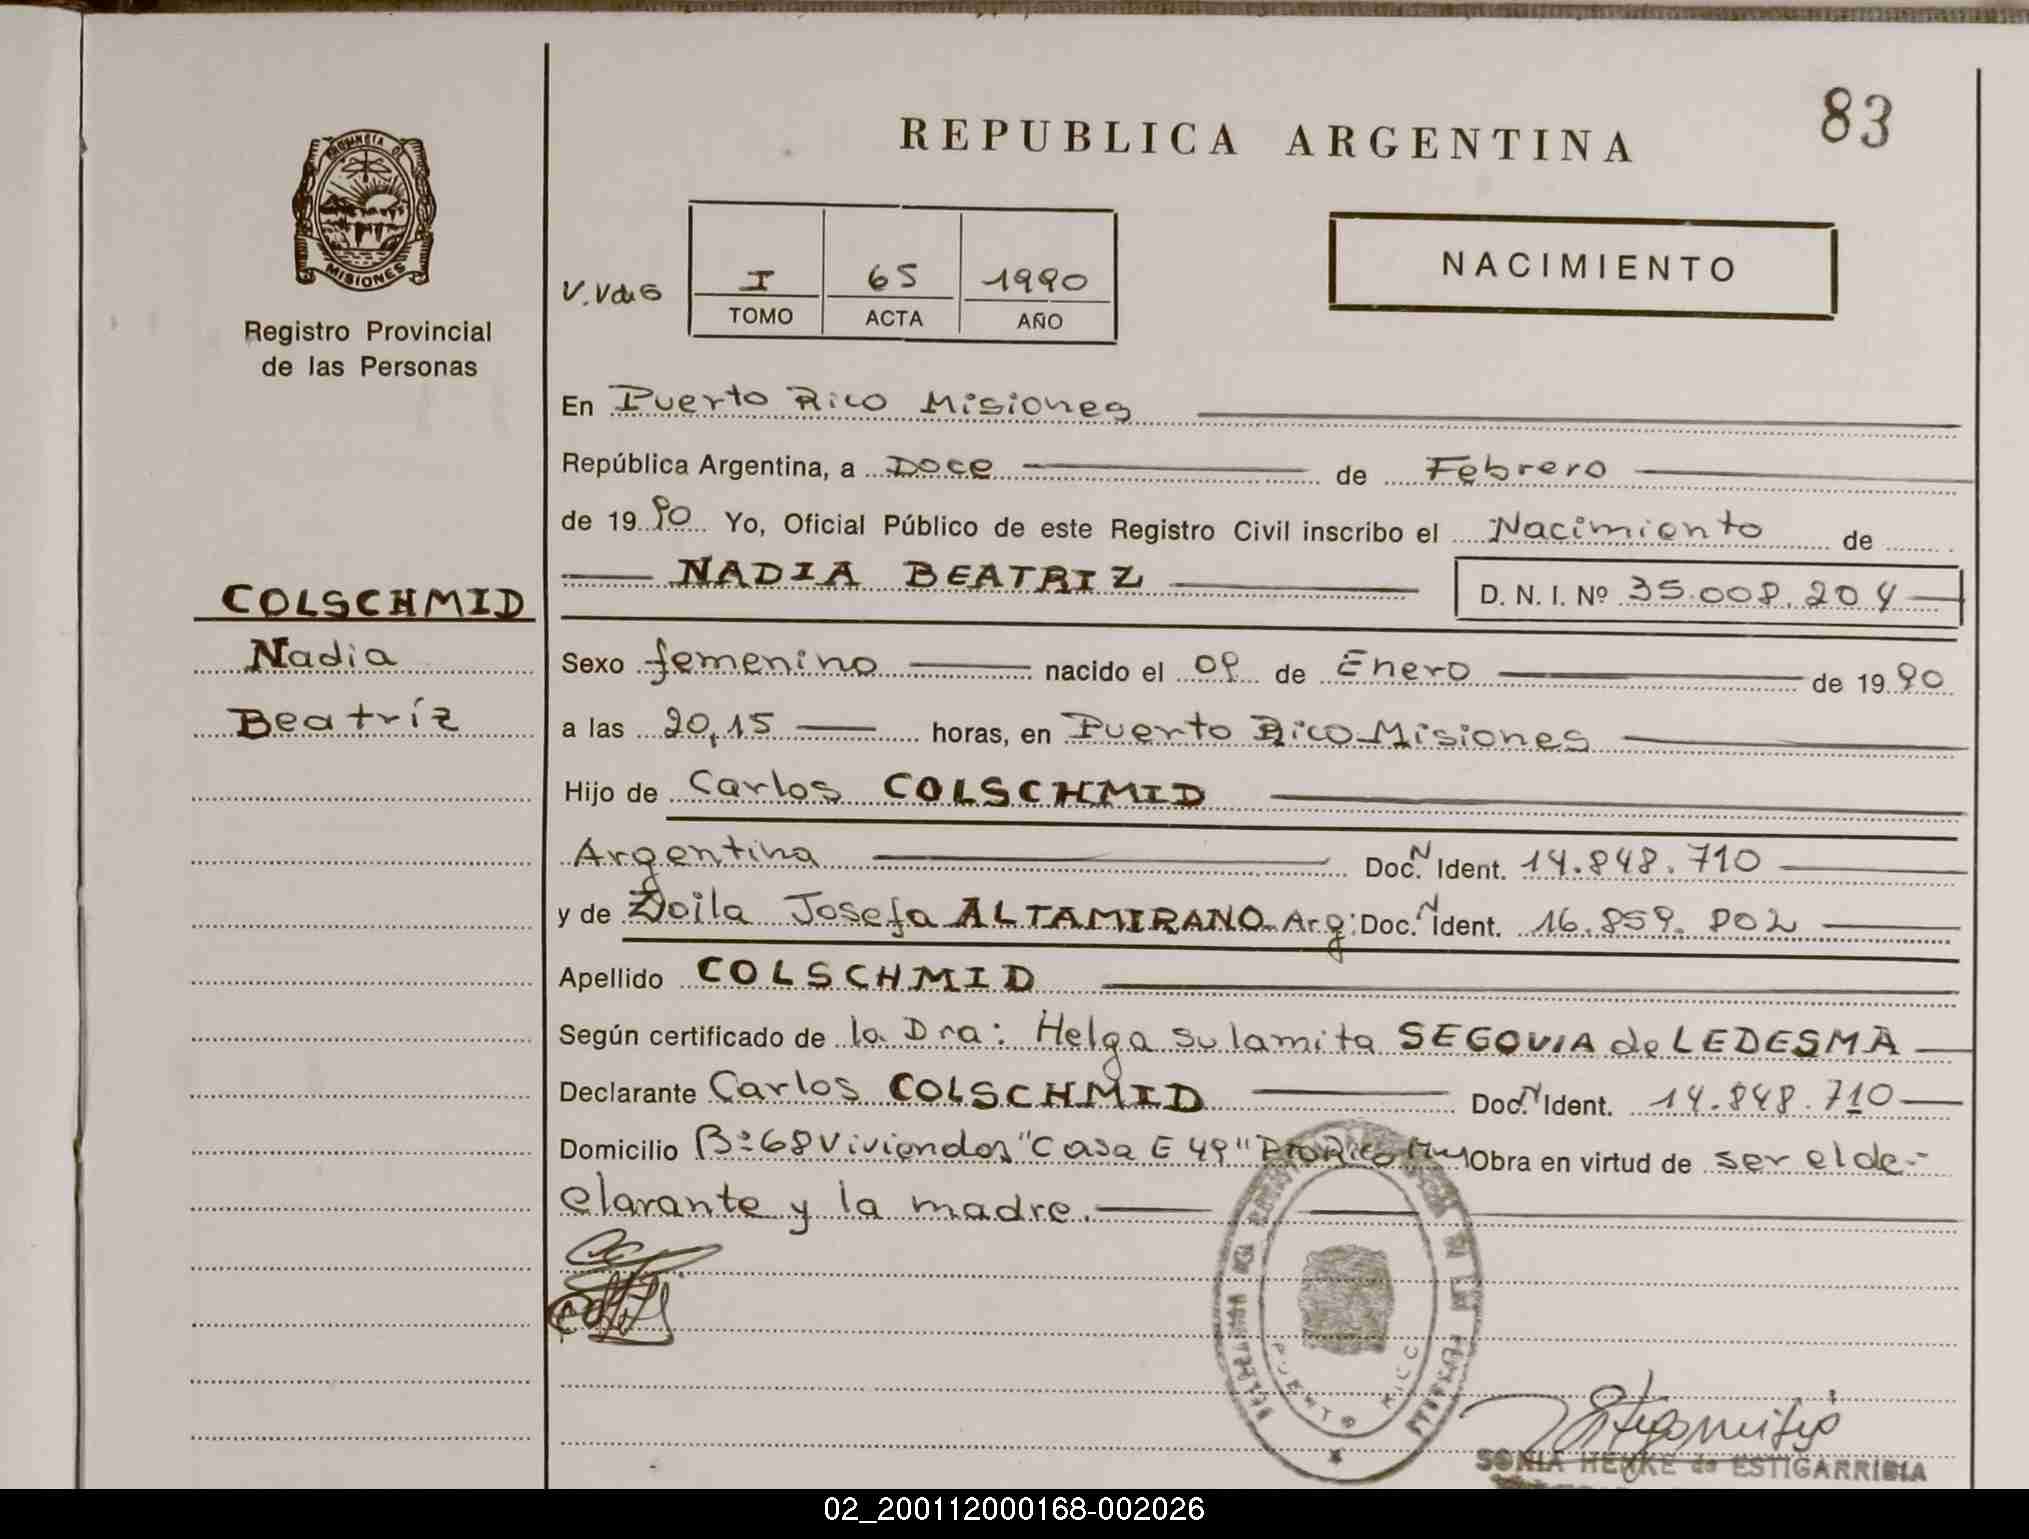 83
REPUBLICA ARGENTINA
PROVINCIA DE
MISIONES
Registro Provincial
de las Personas
NACIMIENTO
I 65 1990
TOMO ACTA AÑO
En Puerto Rico Misiones
República Argentina, a Doce de Febrero
de 1990 Yo, Oficial Público de este Registro Civil inscribo el Nacimiento de
NADIA BEATRIZ D. N. I. Nº 35.008.204
COLSCHMID
Nadia
Beatríz
Sexo femenino nacido el 09 de Enero de 1990
a las 20,15 horas, en Puerto Rico Misiones
Hijo de Carlos COLSCHMID
Argentina Doc. N Ident. 14.848.710
y de Zoila Josefa ALTAMIRANO Arg: Doc. N Ident. 16.859.802
Apellido COLSCHMID
Según certificado de la Dra: Helga Sulamita SEGOVIA de LEDESMA
Declarante Carlos COLSCHMID Doc. N Ident. 14.848.710
Domicilio Bº 68 Viviendas "Casa E 49" Pto Rico Obra en virtud de ser el de-
clarante y la madre.
PUERTO RICO
SONIA HENKE de ESTIGARRIBIA
02_200112000168-002026